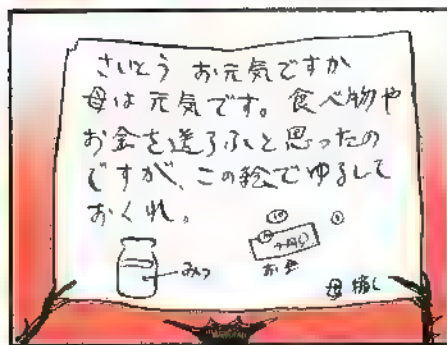 さいとう お元気ですか
母は元気です。食べ物や
お金を送ろふと思ったの
ですが、この絵でゆるして
おくれ。
みつ
お金